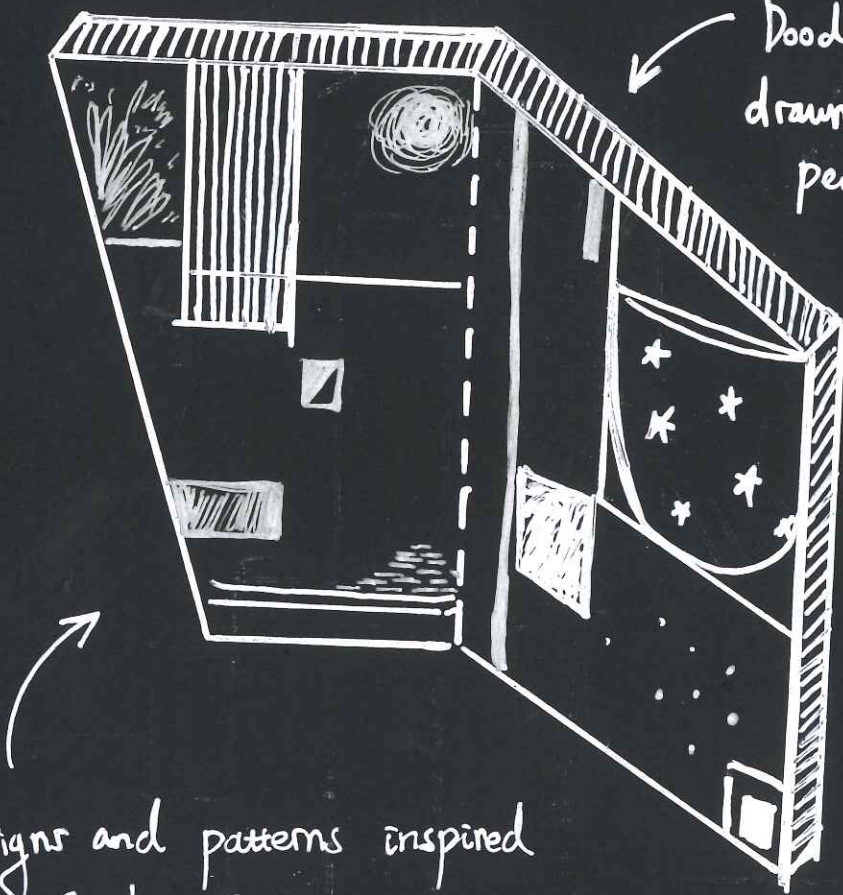 Dood
drawn
pe
igns and patterns inspired